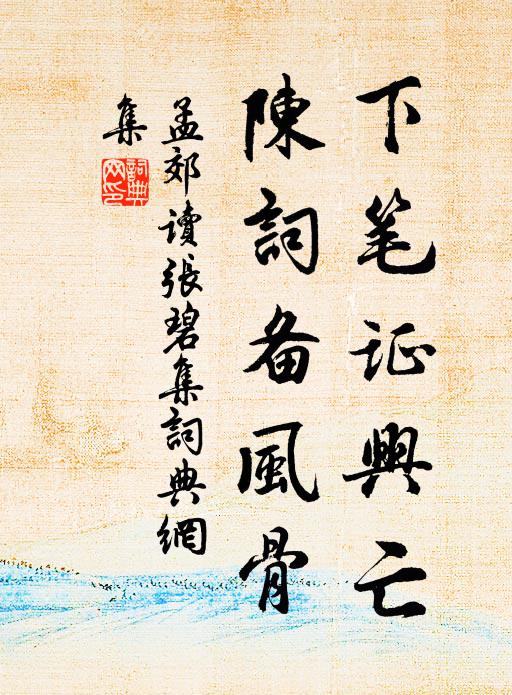 下笔证興亡
陳詞备風骨
孟郊讀張碧集詞典網
集
詞典網印